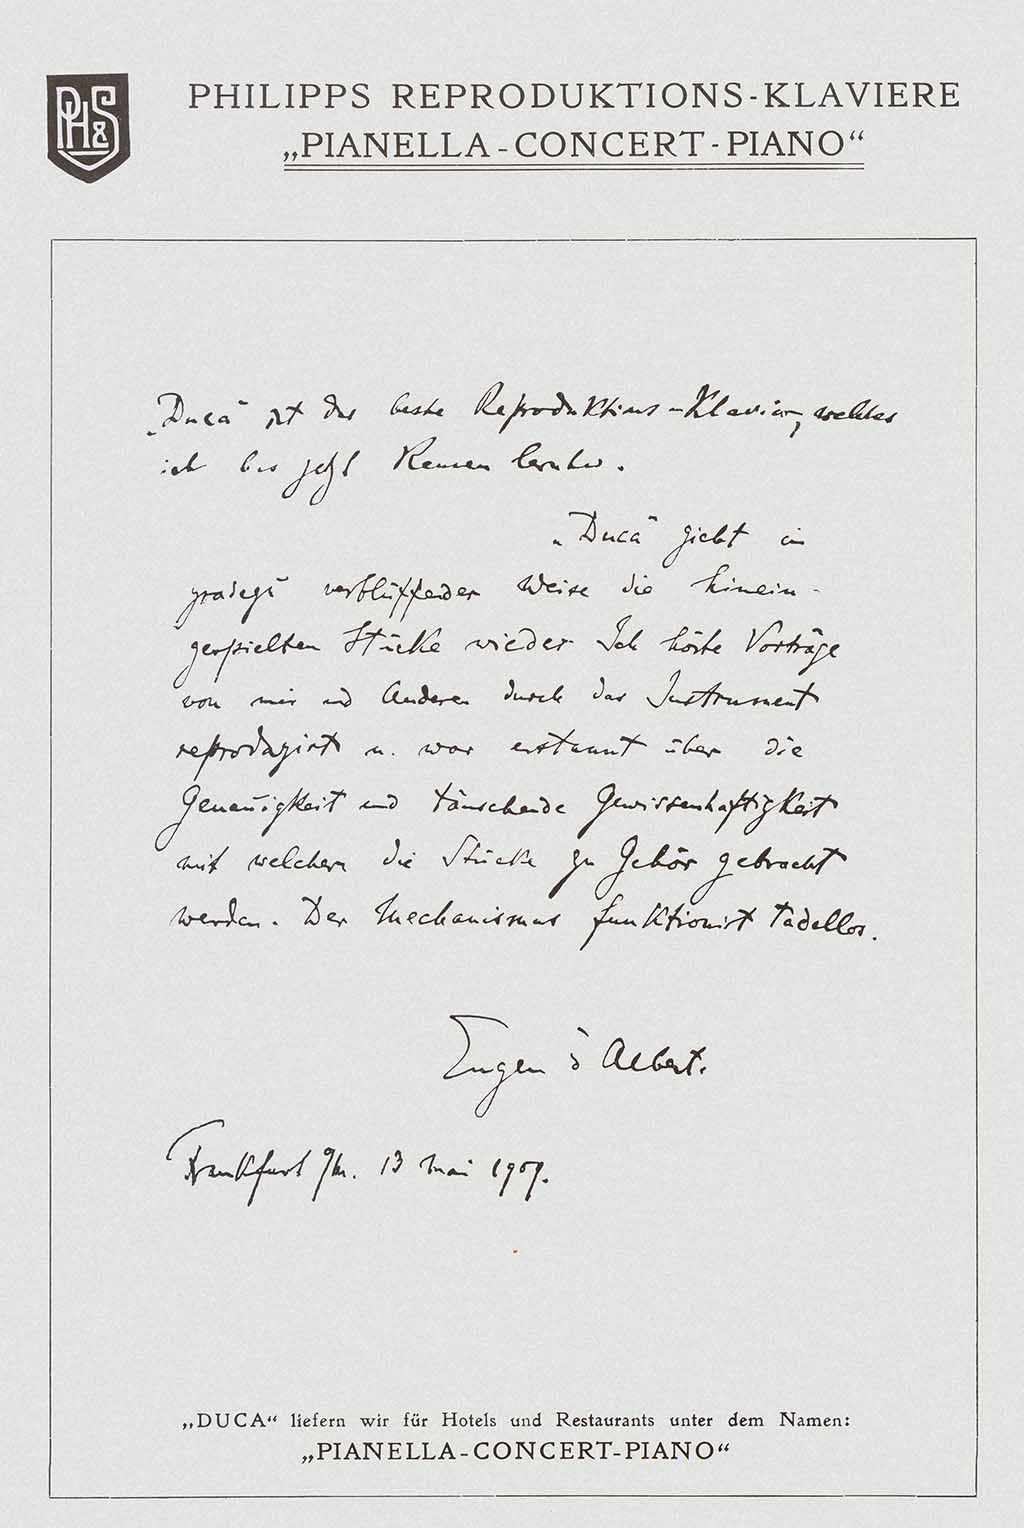 PH&S
PHILIPPS REPRODUKTIONS-KLAVIERE
„PIANELLA-CONCERT-PIANO“
„Duca“ ist das beste Reproduktions-Klavier, welches
ich bis jetzt kennen lernte.
„Duca“ giebt in
gradezu verblüffender Weise die hinein-
gespielten Stücke wieder Ich hörte Vorträge
von mir und Anderen durch das Instrument
reproduzirt u. war erstaunt über die
Genauigkeit und täuschende Gewissenhaftigkeit
mit welchem die Stücke zu Gehör gebracht
werden. Der Mechanismus funktionirt tadellos.
Eugen d'Albert.
Frankfurt a/M. 13 Mai 1909.
„DUCA“ liefern wir für Hotels und Restaurants unter dem Namen:
„PIANELLA-CONCERT-PIANO“